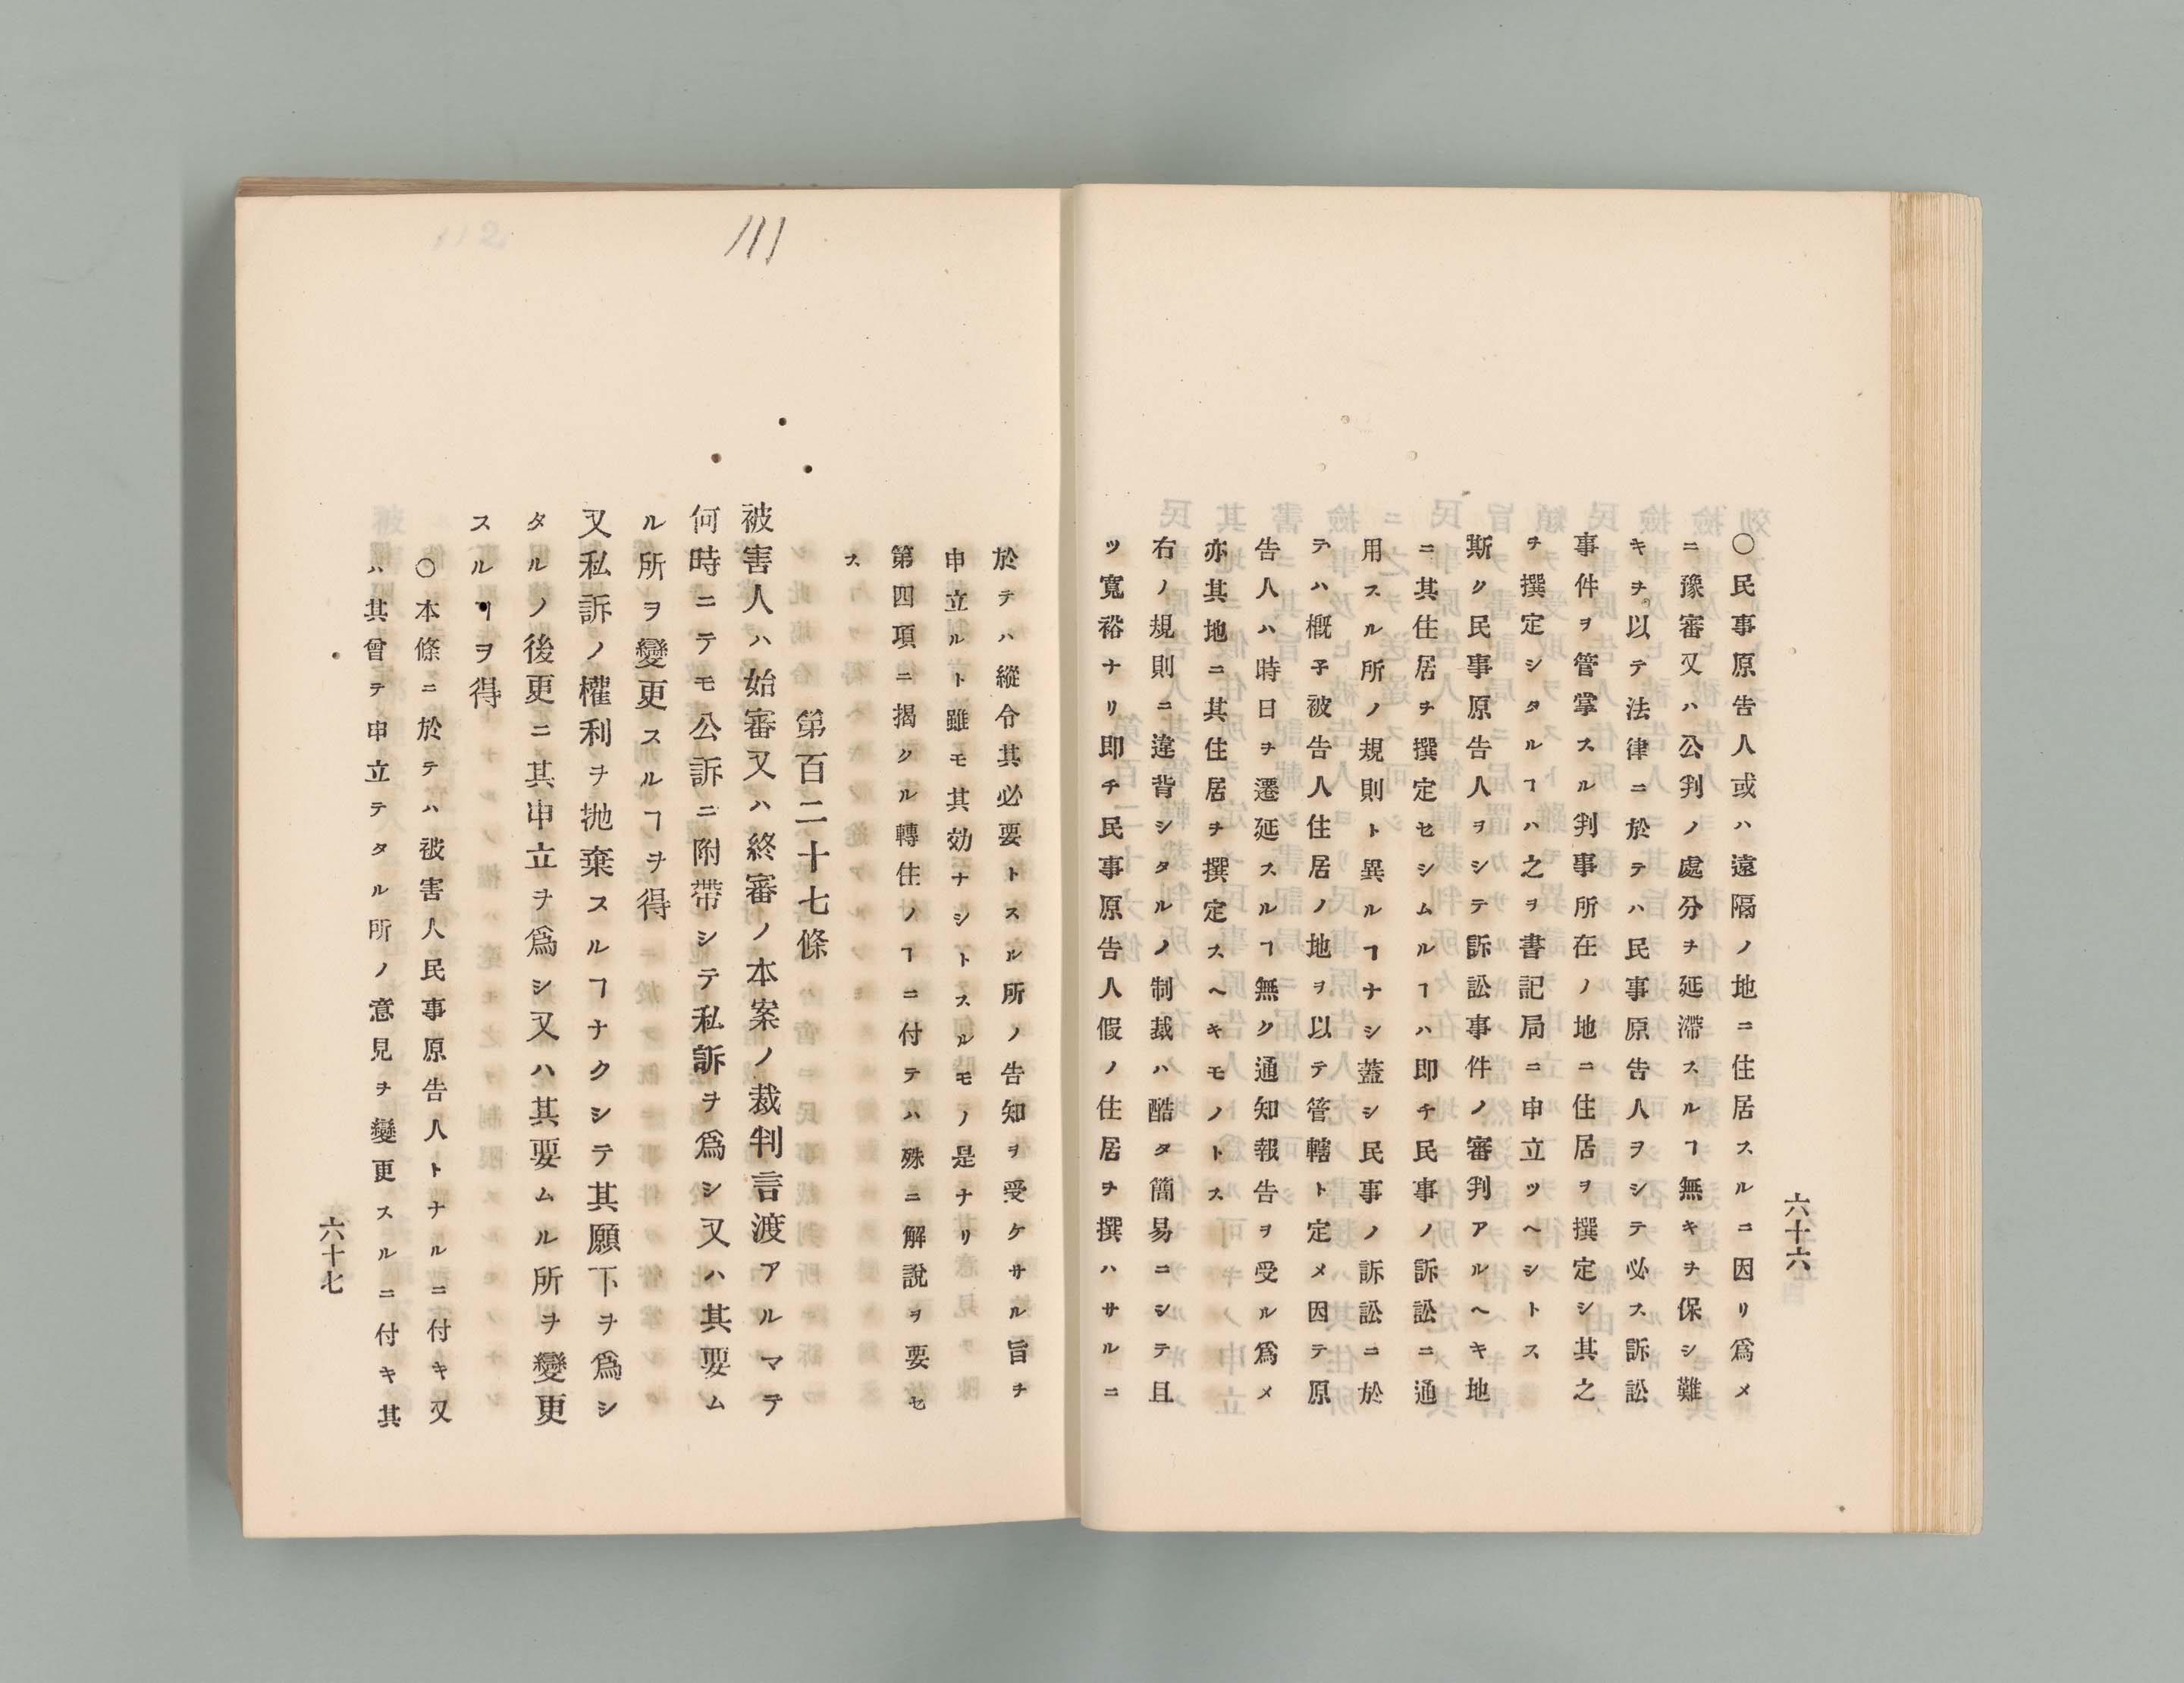 六十六
〇民事原告人或ハ遠隔ノ地ニ住居スルニ因リ爲メ
ニ豫審又ハ公判ノ處分ヲ延滯スルヿ無キヲ保シ難
キヲ以テ法律ニ於テハ民事原告人ヲシテ必ス訴訟
事件ヲ管掌スル判事所在ノ地ニ住居ヲ撰定シ其之
ヲ撰定シタルヿハ之ヲ書記局ニ申立ツヘシトス
斯ク民事原告人ヲシテ訴訟事件ノ審判アルヘキ地
ニ其住居ヲ撰定セシムルヿハ即チ民事ノ訴訟ニ通
用スル所ノ規則ト異ルヿナシ蓋シ民事ノ訴訟ニ於
テハ概子被告人住居ノ地ヲ以テ管轄ト定メ因テ原
告人ハ時日ヲ遷延スルヿ無ク通知報告ヲ受ル爲メ
亦其地ニ其住居ヲ撰定スヘキモノトス
右ノ規則ニ違背シタルノ制裁ハ酷タ簡易ニシテ且
ツ寛裕ナリ即チ民事原告人假ノ住居ヲ撰ハサルニ
111
於テハ縱令其必要トスル所ノ告知ヲ受ケサル旨ヲ
申立ルト雖モ其効ナシトスルモノ是ナリ
第四項ニ揭クル轉住ノヿニ付テハ殊ニ解說ヲ要セ
ス
第百二十七條
被害人ハ始審又ハ終審ノ本案ノ裁判言渡アルマテ
何時ニテモ公訴ニ附帶シテ私訴ヲ爲シ又ハ其要ム
ル所ヲ變更スルヿヲ得
又私訴ノ權利ヲ抛棄スルヿナクシテ其願下ヲ爲シ
タルノ後更ニ其申立ヲ爲シ又ハ其要ムル所ヲ變更
スルヿヲ得
〇本條ニ於テハ被害人民事原告人トナルニ付キ又
ハ其曾テ申立テタル所ノ意見ヲ變更スルニ付キ其
六十七